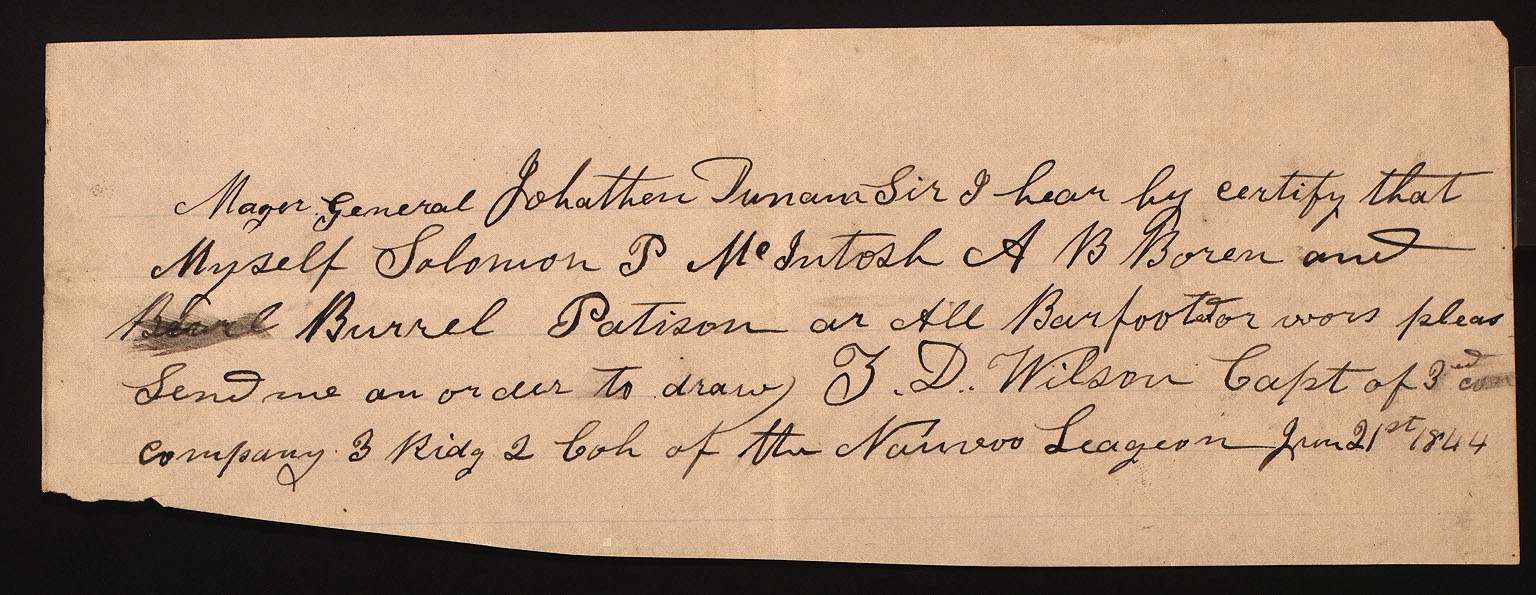 Mager General Johathen Dunam Sir I hear by certify that
Myself Solomon P McIntosh A B Boren and
Burrel Patison ar All Barfoot or wors pleas
Send me an order to draw Z. D. Wilson Capt of 3
company 3 Ridg 2 Coh of the Nauvoo Leageon Jun 21st 1844